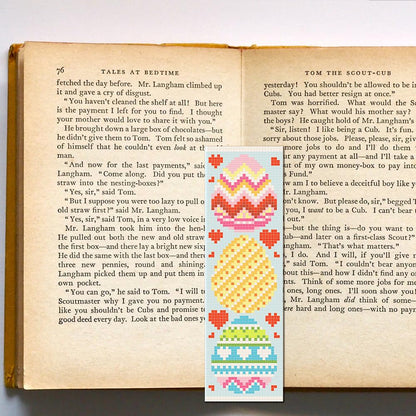 76 TALES AT BEDTIME
fetched the day before. Mr. Langham climbed up
it and gave a cry of disgust.
"You haven't cleaned the shelf at all! But here
is the payment I left for you to find. I thought
your mother would love to share it with you."
He brought down a large box of chocolates—but
he didn't give them to Tom. Tom felt so ashamed
of himself that he couldn't even look at the
man.
"And now for the last payments," said
Langham. "Come along. Did you put the
straw into the nesting-boxes?"
"Yes, sir," said Tom.
"But I suppose you were too lazy to pull o
old straw first?" said Mr. Langham.
"Yes, sir," said Tom, in a very low voice i
Mr. Langham took him into the hen-
He pulled out both the new and old straw
the first box—and there lay a bright new six
He did the same with the last box—and ther
three new pennies, round and shining.
Langham picked them up and put them in
own pocket.
"You can go," he said to Tom. "I will to
Scoutmaster why I gave you no payment.
like you shouldn't be Cubs and promise to
good deed every day. Look at the bad ones yo
TOM THE SCOUT-CUB
yesterday! You shouldn't be allowed to be in
Cubs. You had better resign at once."
Tom was horrified. What would the Sc
master say? What would his mother say? W
the boys? He caught hold of Mr. Langham's
"Sir, listen! I like being a Cub. It's fun.
sorry about those jobs. Please, please, sir, giv
more jobs to do and I'll do them
any payment at all—and I'll take a
out of my own money-box to pay into
Fund."
am I to believe a deceitful boy like y
know. But please do, sir," begged T
you, I want to be a Cub. I can't bear
out."
—but the thing is—do you want to
Cub—and later on a first-class Scout?"
do. "That's what matters."
I do. And I will, if you'll give m
said Tom. "I couldn't bear anyon
about this—and how I didn't find any o
Think of some more jobs for me
ones, long ones. I'll soon show you
Mr. Langham did think of some
hard and long ones—with no paym